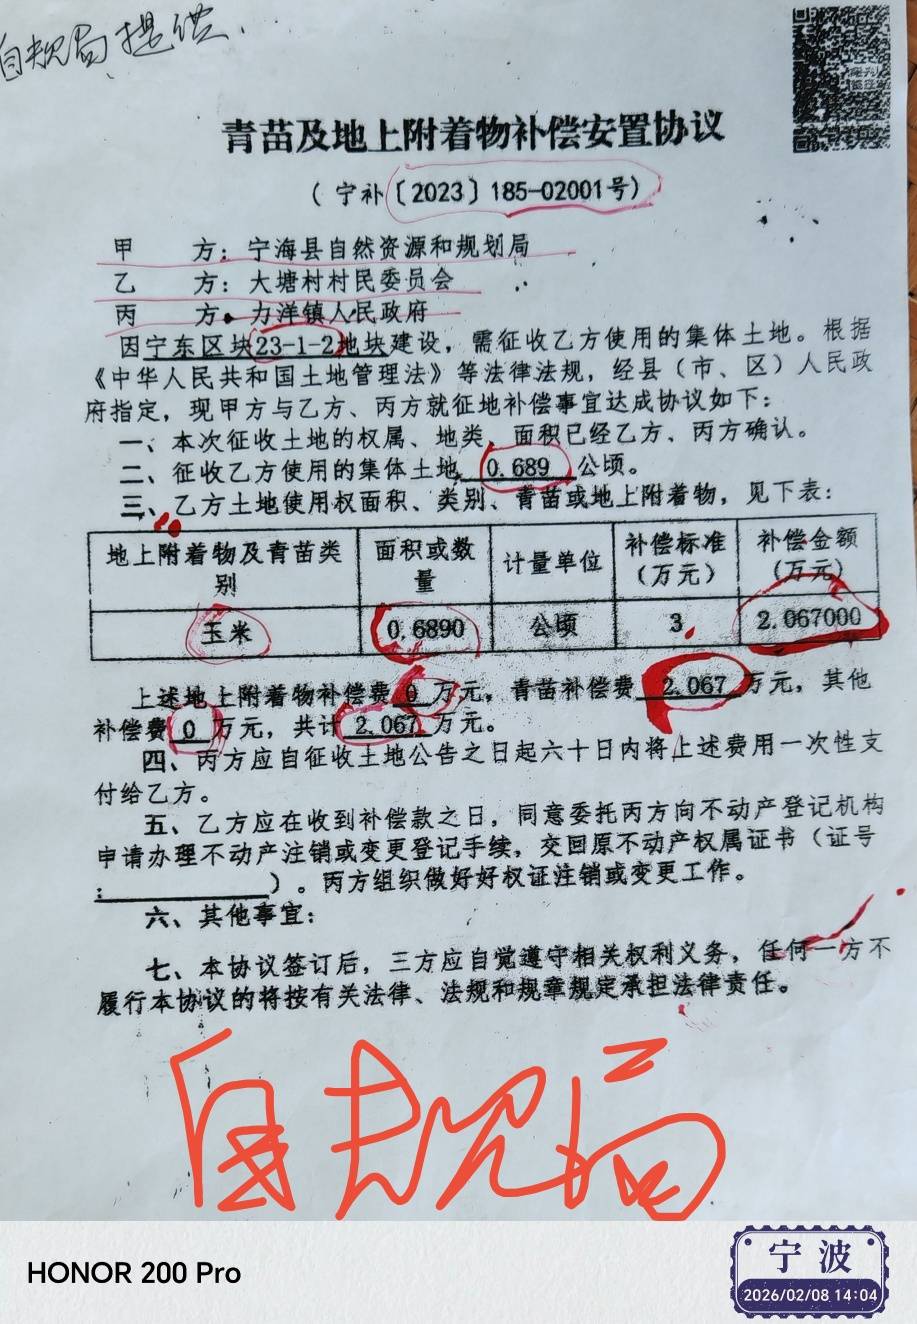 自规局提供.
青苗及地上附着物补偿安置协议
(宁补〔2023〕185-02001号)
甲 方：宁海县自然资源和规划局
乙 方：大塘村村民委员会
丙 方：力洋镇人民政府
因宁东区块23-1-2地块建设，需征收乙方使用的集体土地。根据
《中华人民共和国土地管理法》等法律法规，经县（市、区）人民政
府指定，现甲方与乙方、丙方就征地补偿事宜达成协议如下：
一、本次征收土地的权属、地类、面积已经乙方、丙方确认。
二、征收乙方使用的集体土地 0.689 公顷。
三、乙方土地使用权面积、类别、青苗或地上附着物，见下表：
地上附着物及青苗类别 面积或数量 计量单位 补偿标准（万元） 补偿金额（万元）
玉米 0.6890 公顷 3 2.067000
上述地上附着物补偿费 0 万元，青苗补偿费 2.067 万元，其他
补偿费 0 万元，共计 2.067 万元。
四、丙方应自征收土地公告之日起六十日内将上述费用一次性支
付给乙方。
五、乙方应在收到补偿款之日，同意委托丙方向不动产登记机构
申请办理不动产注销或变更登记手续，交回原不动产权属证书（证号
：____________）。丙方组织做好好权证注销或变更工作。
六、其他事宜：
七、本协议签订后，三方应自觉遵守相关权利义务，任何一方不
履行本协议的将按有关法律、法规和规章规定承担法律责任。
自规局
HONOR 200 Pro
宁波
2026/02/08 14:04